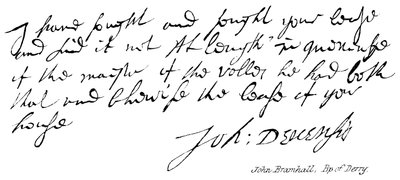 I have sought and sought your lease
and find it not At length I in
if the maister of the Rolles he had both
that and likewise the lease of your
house
Joh: Derensis
John Bramhall, Bp of Derry.